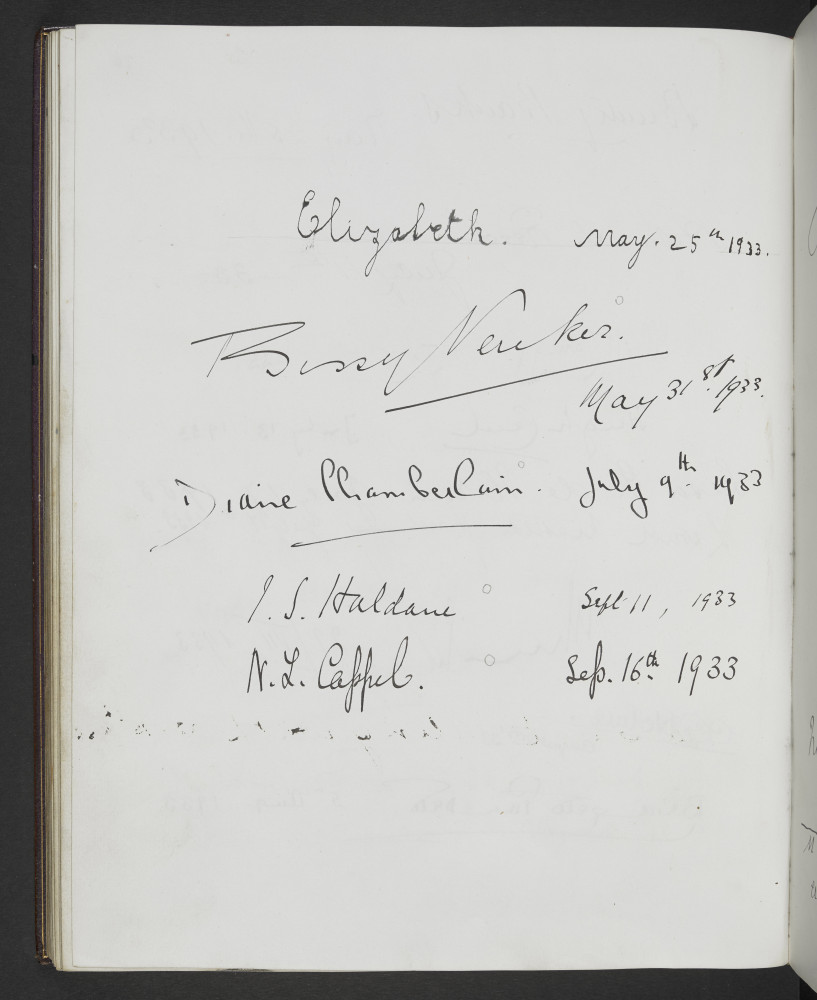 Elizabeth. May. 25th 1933.
Bussy Vereker.
May 31st 1933.
Diane Chamberlain. July 9th 1933
J. S. Haldane Sept 11, 1933
N. L. Cappel. Sep. 16th 1933